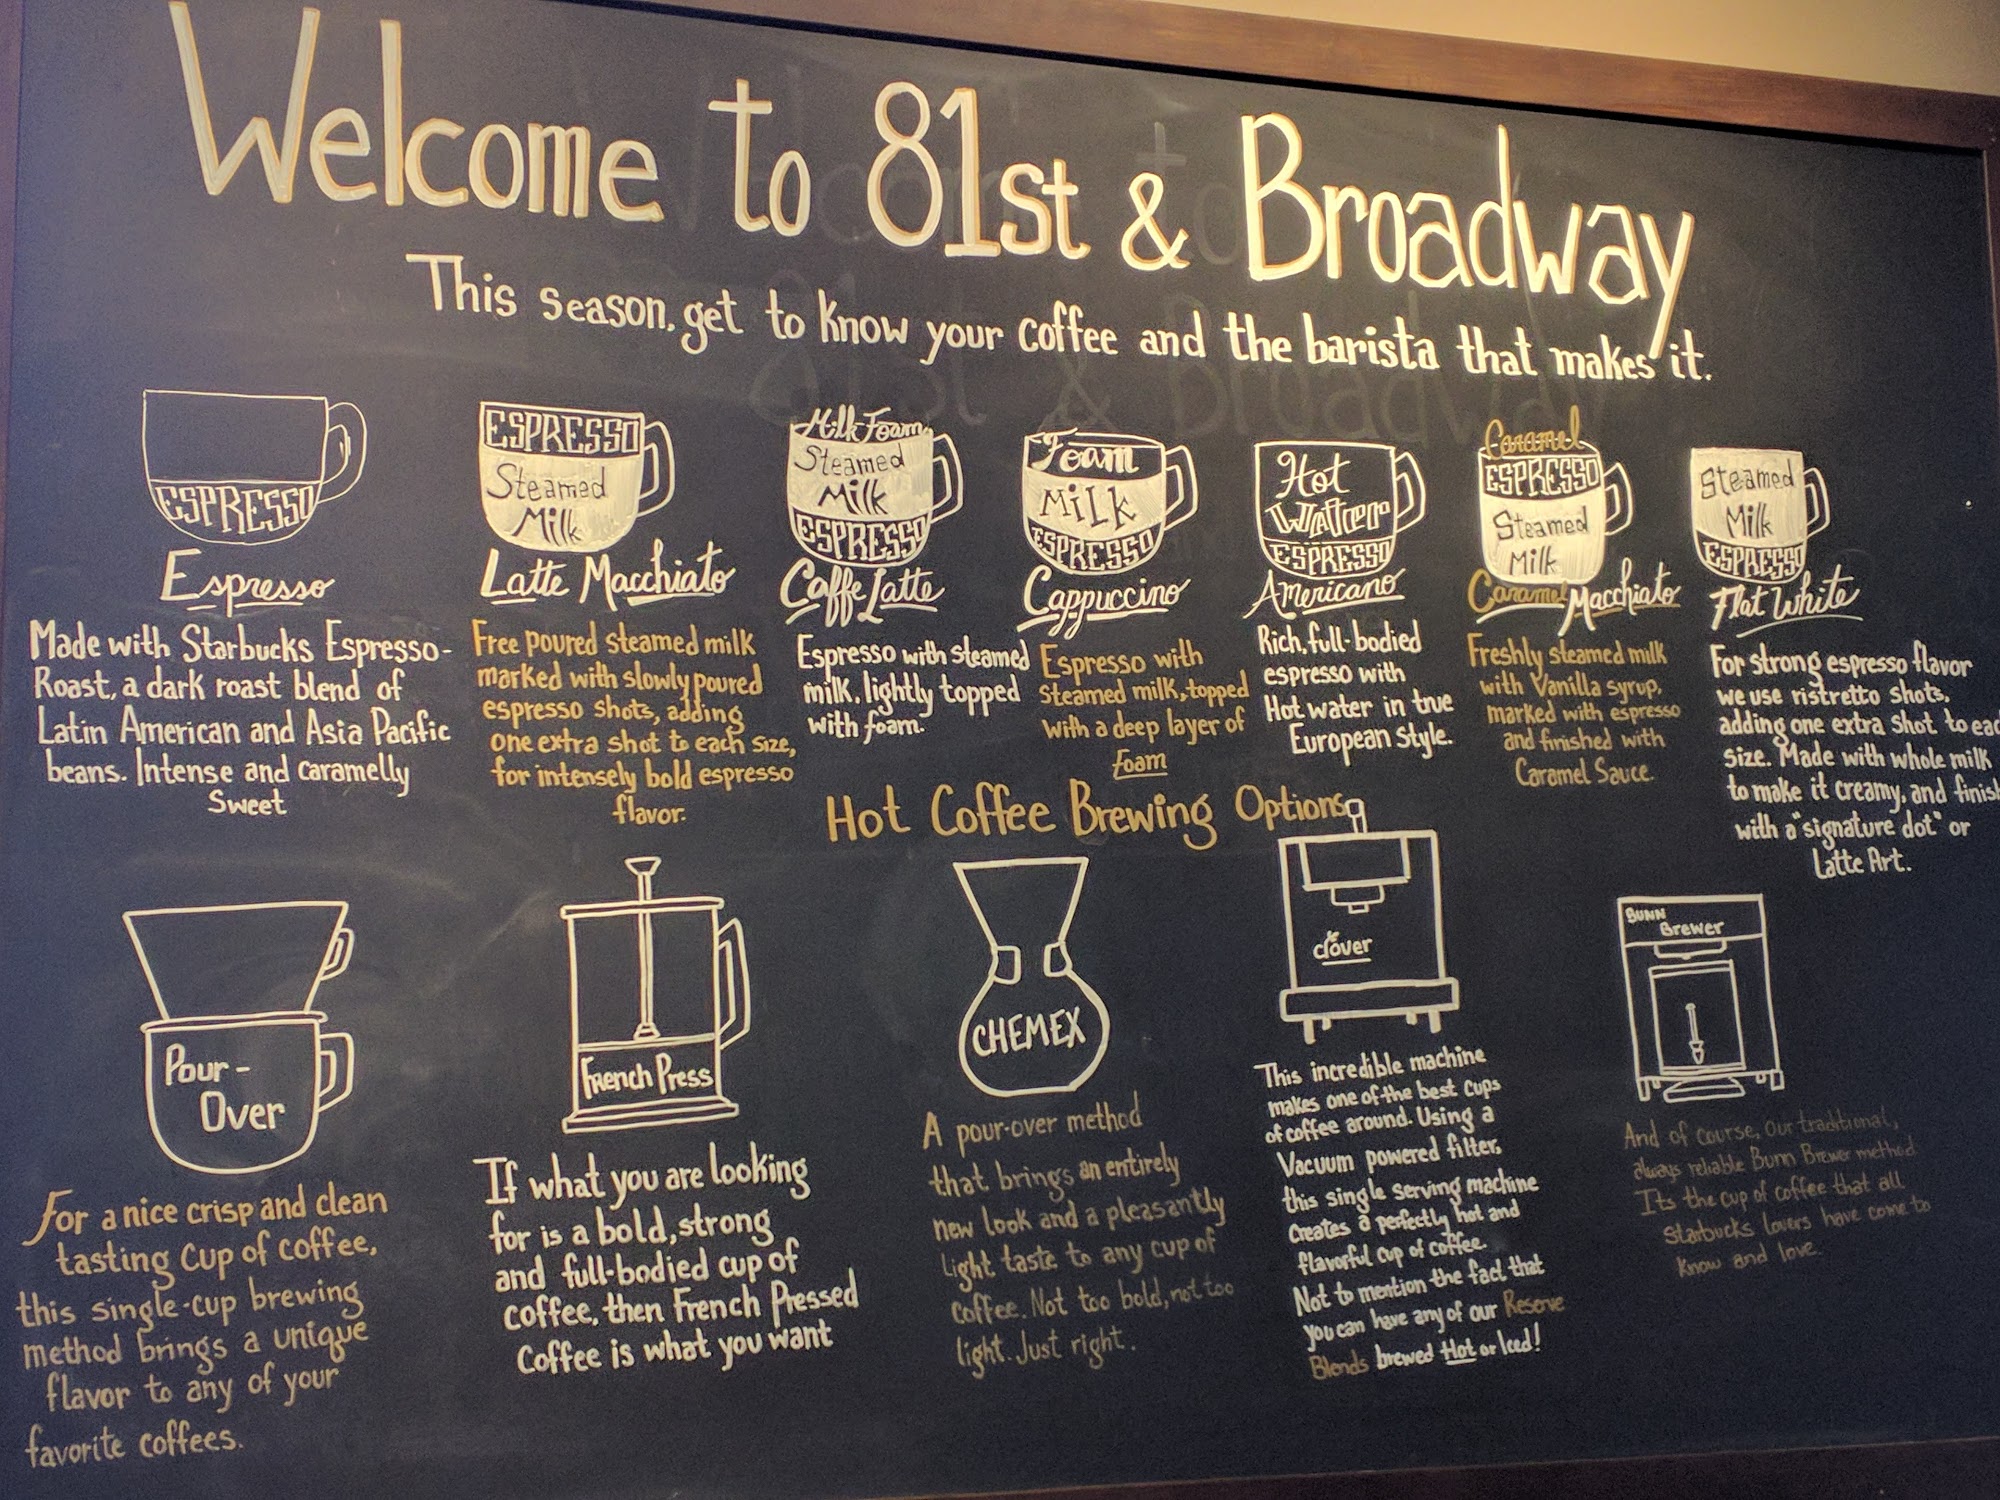 Welcome to 81st & Broadway
This season, get to know your coffee and the barista that makes it.
ESPRESSO
Espresso
Made with Starbucks Espresso-
Roast, a dark roast blend of
Latin American and Asia Pacific
beans. Intense and caramelly
Sweet
ESPRESSO
Steamed
Milk
Latte Macchiato
Free poured steamed milk
marked with slowly poured
espresso shots, adding
one extra shot to each size,
for intensely bold espresso
flavor.
Milk Foam
Steamed
Milk
ESPRESSO
Caffe Latte
Espresso with steamed
milk, lightly topped
with foam.
Foam
MiLK
ESPRESSO
Cappuccino
Espresso with
steamed milk, topped
with a deep layer of
foam
Hot
Water
ESPRESSO
Americano
Rich, full-bodied
espresso with
Hot water in true
European style.
Caramel
ESPRESSO
Steamed
Milk
Caramel Macchiato
Freshly steamed milk
with Vanilla syrup,
marked with espresso
and finished with
Caramel Sauce.
Steamed
Milk
ESPRESSO
Flat White
For strong espresso flavor
we use ristretto shots,
adding one extra shot to eac
size. Made with whole milk
to make it creamy, and finis
with a "signature dot" or
Latte Art.
Hot Coffee Brewing Options
Pour-
Over
For a nice crisp and clean
tasting cup of coffee,
this single-cup brewing
method brings a unique
flavor to any of your
favorite coffees.
French Press
If what you are looking
for is a bold, strong
and full-bodied cup of
coffee, then French Pressed
Coffee is what you want
CHEMEX
A pour-over method
that brings an entirely
new look and a pleasantly
light taste to any cup of
coffee. Not too bold, not too
light. Just right.
clover
This incredible machine
makes one of the best cups
of coffee around. Using a
Vacuum powered filter,
this single serving machine
creates a perfectly hot and
flavorful cup of coffee.
Not to mention the fact that
you can have any of our Reserve
Blends brewed Hot or Iced!
BUNN
Brewer
And of course, our traditional,
always reliable Bunn Brewer method
Its the cup of coffee that all
Starbucks lovers have come to
know and love.